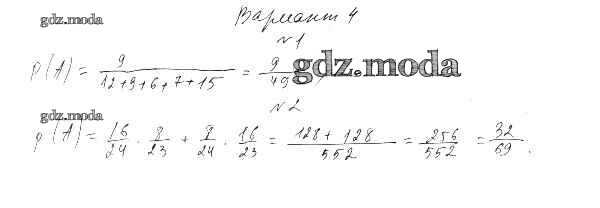 gdz.moda
Вариант 4
№1
P(A) = 9/(12+9+6+7+15) = 9/49
gdz.moda
№2
gdz.moda
P(A) = 16/24 · 8/23 + 8/24 · 16/23 = (128+128)/552 = 256/552 = 32/69.